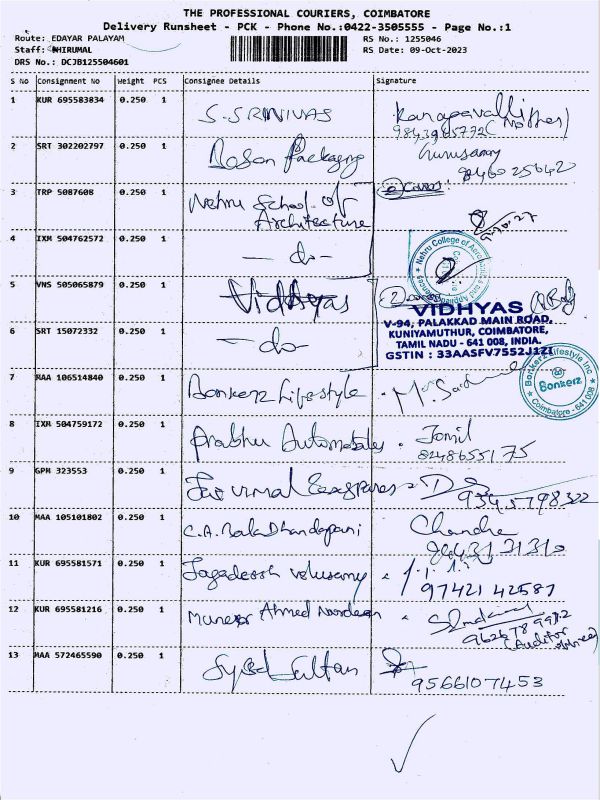 THE PROFESSIONAL COURIERS, COIMBATORE
Delivery Runsheet - PCK - Phone No.:0422-3505555 - Page No.:1
Route: EDAYAR PALAYAM
RS No.: 1255046
Staff: DHIRUMAL
RS Date: 09-Oct-2023
DRS No.: DCJB125504601
S No Consignment No Weight PCS Consignee Details Signature
1 KUR 695583834 0.250 1 S. SRINIVAS
2 SRT 302202797 0.250 1 Packaging Gurusamy
3 TRP 5087608 0.250 1 Nehru School of
Architecture
4 IXM 504762572 0.250 1 - do -
Nehru College of Aeronautics and Applied Sciences
5 VNS 505065879 0.250 1 Vidhyas
VIDHYAS
V-94, PALAKKAD MAIN ROAD,
KUNIYAMUTHUR, COIMBATORE,
TAMIL NADU - 641 008, INDIA.
GSTIN : 33AASFV7552J1ZI
6 SRT 15072332 0.250 1 - do -
7 MAA 106514840 0.250 1 Bonkerz Lifestyle
Bonkerz Lifestyle Inc
Bonkerz
Coimbatore - 641 008
8 IXM 504759172 0.250 1 Prabhu Automobiles
9 GPM 323553 0.250 1
10 MAA 105101802 0.250 1 C.A. Bala Dhandapani Chandra
11 KUR 695581571 0.250 1 Jagadeesh Velusamy
97421 42587
12 KUR 695581216 0.250 1 Muneer Ahmed Noordeen
(Auditor
13 MAA 572465590 0.250 1 Syed Sultan
9566107453